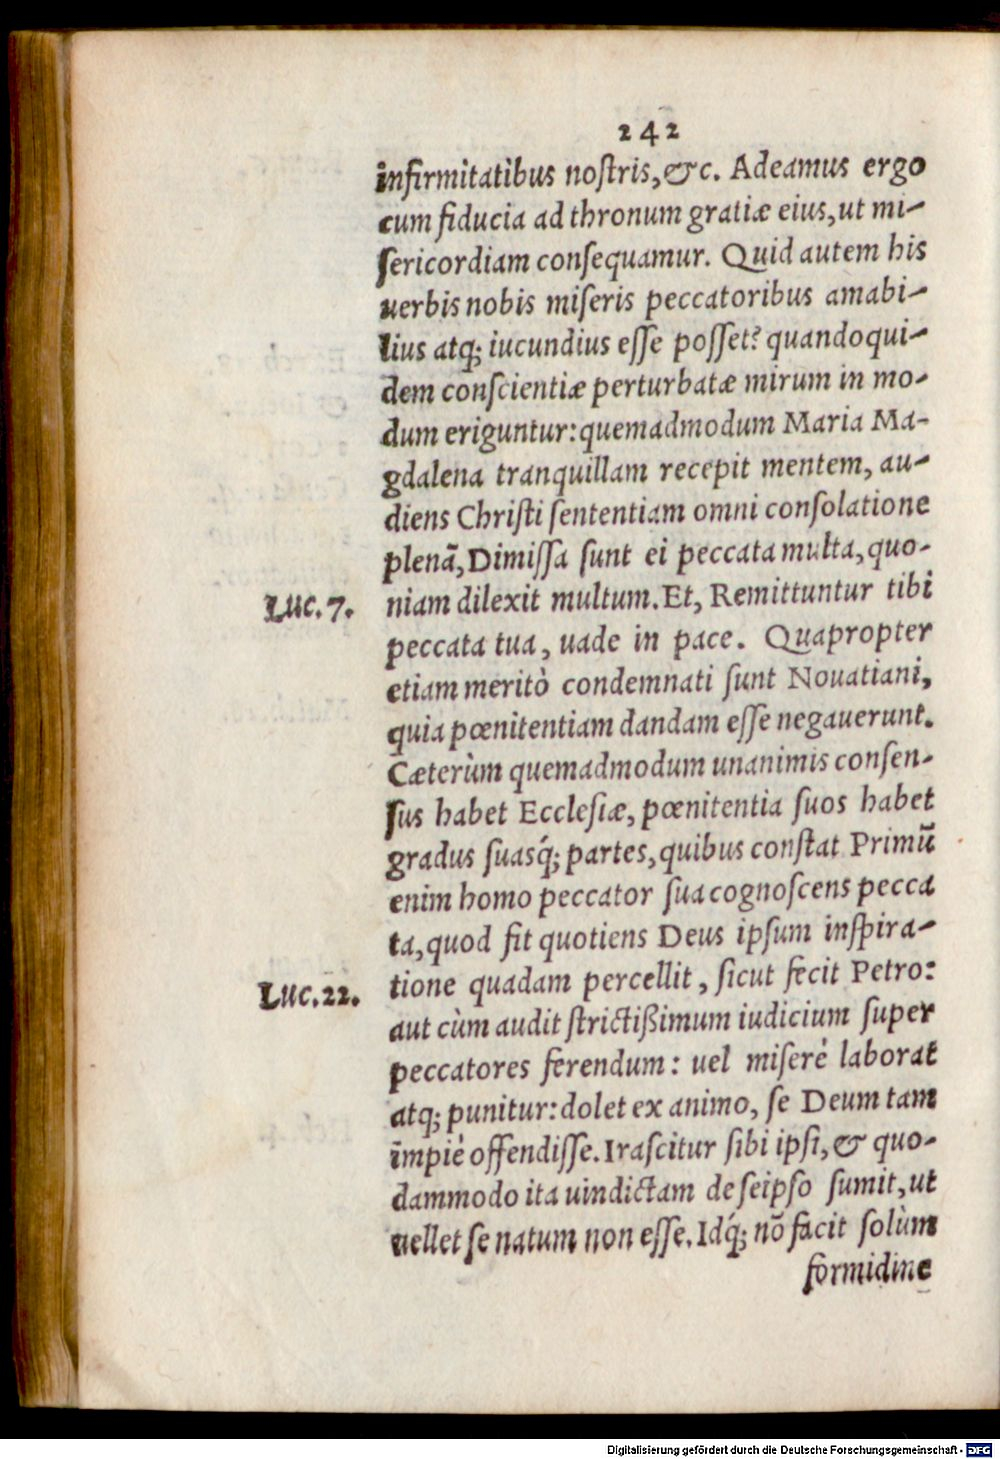 242
infirmitatibus noſtris, &c. Adeamus ergo
cum fiducia ad thronum gratiæ eius, ut mi-
ſericordiam conſequamur. Quid autem his
uerbis nobis miſeris peccatoribus amabi-
lius atq; iucundius eſſe poſſet? quandoqui-
dem conſcientiæ perturbatæ mirum in mo-
dum eriguntur: quemadmodum Maria Ma-
gdalena tranquillam recepit mentem, au-
diens Chriſti ſententiam omni conſolatione
plenã, Dimiſſa ſunt ei peccata multa, quo-
Luc. 7. niam dilexit multum. Et, Remittuntur tibi
peccata tua, uade in pace. Quapropter
etiam meritò condemnati ſunt Nouatiani,
quia pœnitentiam dandam eſſe negauerunt.
Cæterùm quemadmodum unanimis conſen-
ſus habet Eccleſiæ, pœnitentia ſuos habet
gradus ſuasq́; partes, quibus conſtat Primũ
enim homo peccator ſua cognoſcens pecca
ta, quod fit quotiens Deus ipſum inſpira-
Luc. 22. tione quadam percellit, ſicut fecit Petro:
aut cùm audit ſtrictißimum iudicium ſuper
peccatores ferendum: uel miſerè laborat
atq; punitur: dolet ex animo, ſe Deum tam
impiè offendiſſe. Iraſcitur ſibi ipſi, & quo-
dammodo ita uindictam de ſeipſo ſumit, ut
uellet ſe natum non eſſe. Idq́; nõ facit ſolùm
formidine
Digitalisierung gefördert durch die Deutsche Forschungsgemeinschaft - DFG